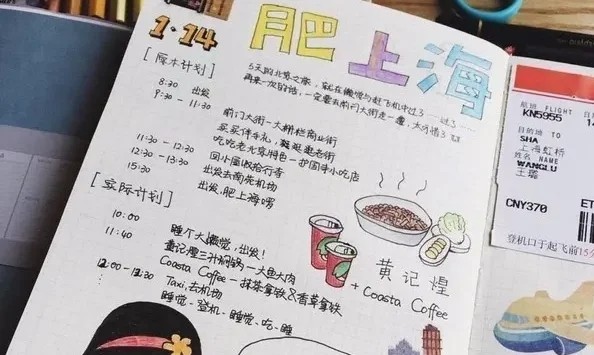 1·14
肥上海
[原本计划]
5天的北京之旅，就在懒觉与赶飞机中过了……过了……
再来一次的话，一定要去前门大街走一遭，太可惜了
8:30 出发
9:30 - 11:30
前门大街-大栅栏商业街
买买伴手礼，逛逛老街
11:30 - 12:30 吃吃老北京特色-护国寺小吃店
12:30 - 13:30 回小屋收拾行李
15:30 出发去南苑机场
出发，肥上海啰
[实际计划]
10:00 睡个大懒觉，出发！
11:40 黄记煌三汁焖锅-大鱼大肉
Coasta Coffee-抹茶拿铁&香草拿铁
12:00-12:30 Taxi，去机场
睡觉-登机-睡觉-吃-睡
黄记煌
+ Coasta Coffee
航班 FLIGHT
KN5955
目的地 TO
SHA
上海虹桥
姓名 NAME
WANGLU
王璐
CNY370
ET
登机口于起飞前15分